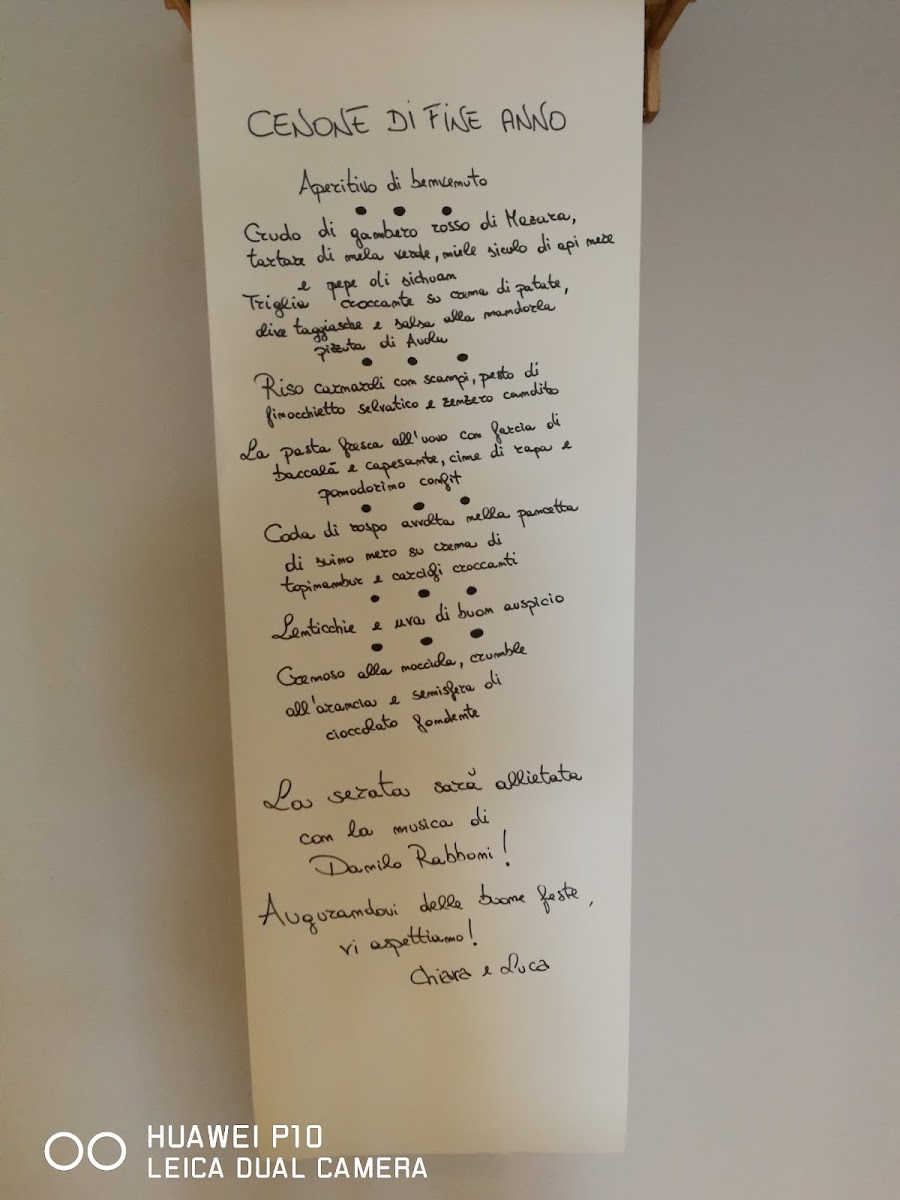 CENONE DI FINE ANNO
Aperitivo di benvenuto
Crudo di gambero rosso di Mazara,
tartare di mela verde, miele siculo di api nere
e pepe di sichuan
Triglia croccante su crema di patate,
olive taggiasche e salsa alla mandorla
pizzuta di Avola
Riso carnaroli con scampi, pesto di
finocchietto selvatico e zenzero candito
La pasta fresca all'uovo con farcia di
baccalà e capesante, cime di rapa e
pomodorino confit
Coda di rospo avvolta nella pancetta
di suino nero su crema di
topinambur e carciofi croccanti
Lenticchie e uva di buon auspicio
Cremoso alla nocciola, crumble
all'arancia e semisfera di
cioccolato fondente
La serata sarà allietata
con la musica di
Danilo Rabboni!
Augurandovi delle buone feste,
vi aspettiamo!
Chiara e Luca
HUAWEI P10
LEICA DUAL CAMERA